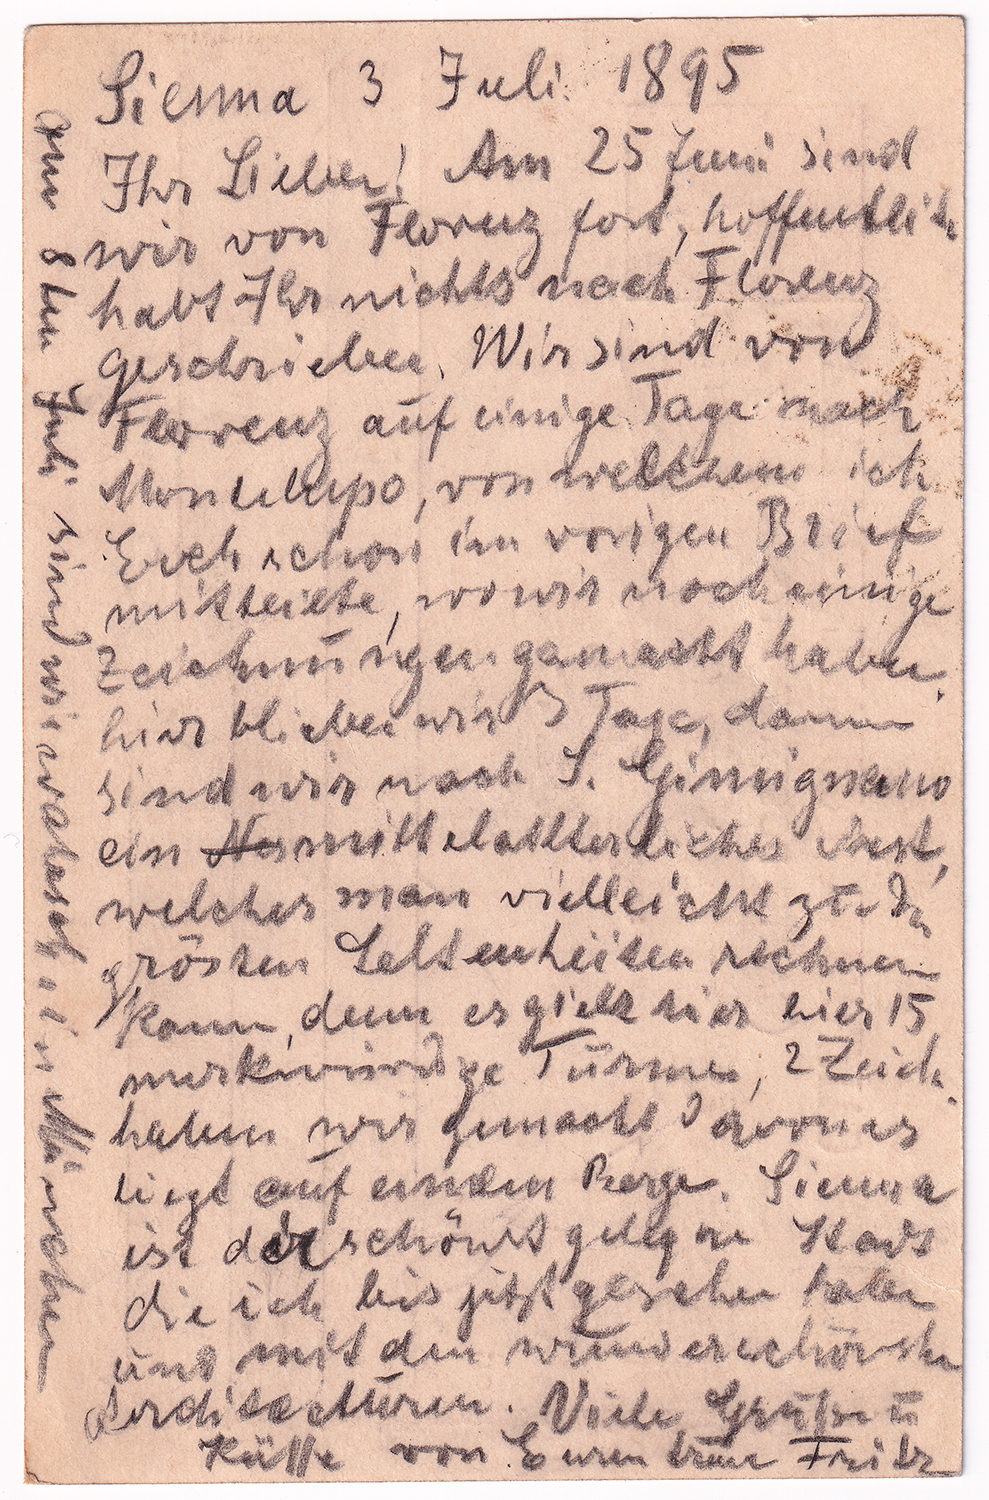 Sienna 3 Juli. 1895
Ihr Lieben! Am 25 Juni sind
wir von Florenz fort, hoffentlich
habt Ihr nichts nach Florenz
geschrieben. Wir sind von
Florenz auf einige Tage nach
Montelupo, von welchem ich
Euch schon im vorigen Brief
mitteilte, wo wir noch einige
Zeichnungen gemacht haben.
hier blieben wir 3 Tage, dann
sind wir nach S. Gimignano
ein mittelalterliches Nest,
welches man vielleicht zu dn
grösten Seltenheiten rechnen
kann, denn es giebt hier hier 15
merkwürdige Türme, 2 Zeich.
haben wir gemacht davon es
liegt auf einem Berge. Sienna
ist die schönst gelegne Stadt
die ich bis jetzt gesehen habe
und mit den wunderschönsten
Arditecturen. Viele Grüße u
Küsse von Euren treuen Fritz
Am 8ten Juli sind wir wahrsch. in München